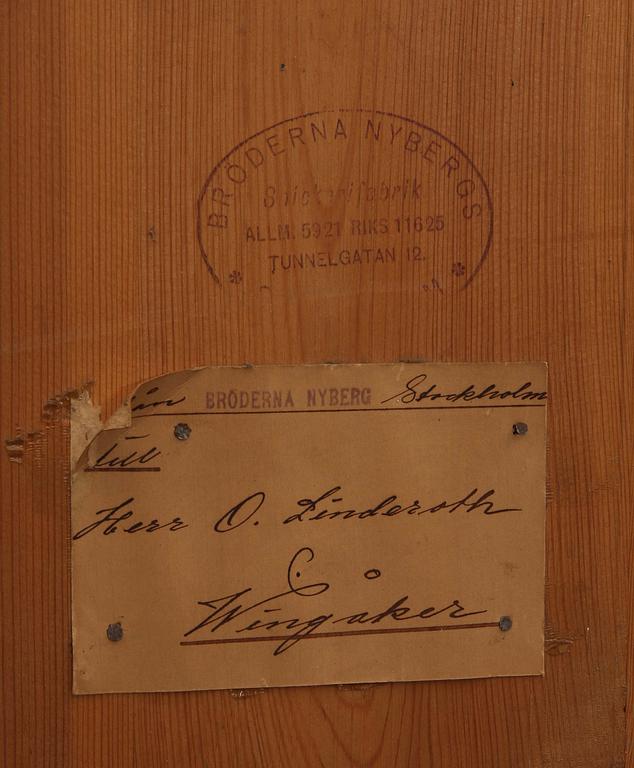 BRÖDERNA NYBERGS
Snickerifabrik
ALLM. 5921 RIKS 11625
TUNNELGATAN 12.
BRÖDERNA NYBERG Stockholm
till
Herr O. Linderoth
Wingåker